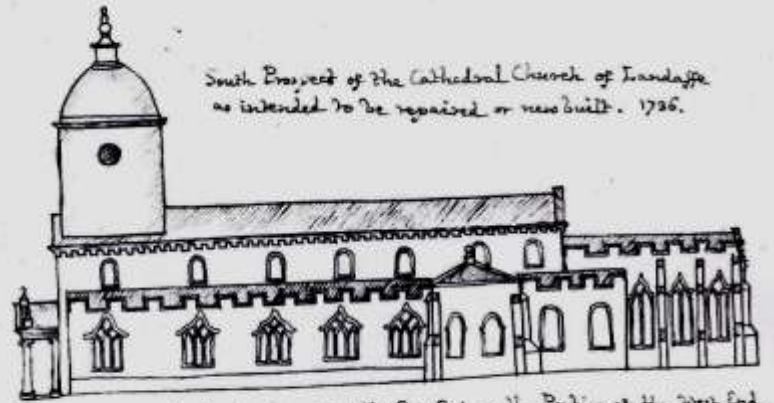 South Prospect of the Cathedral Church of Landaffe
as intended to be repaired or new built. 1736.
the West End